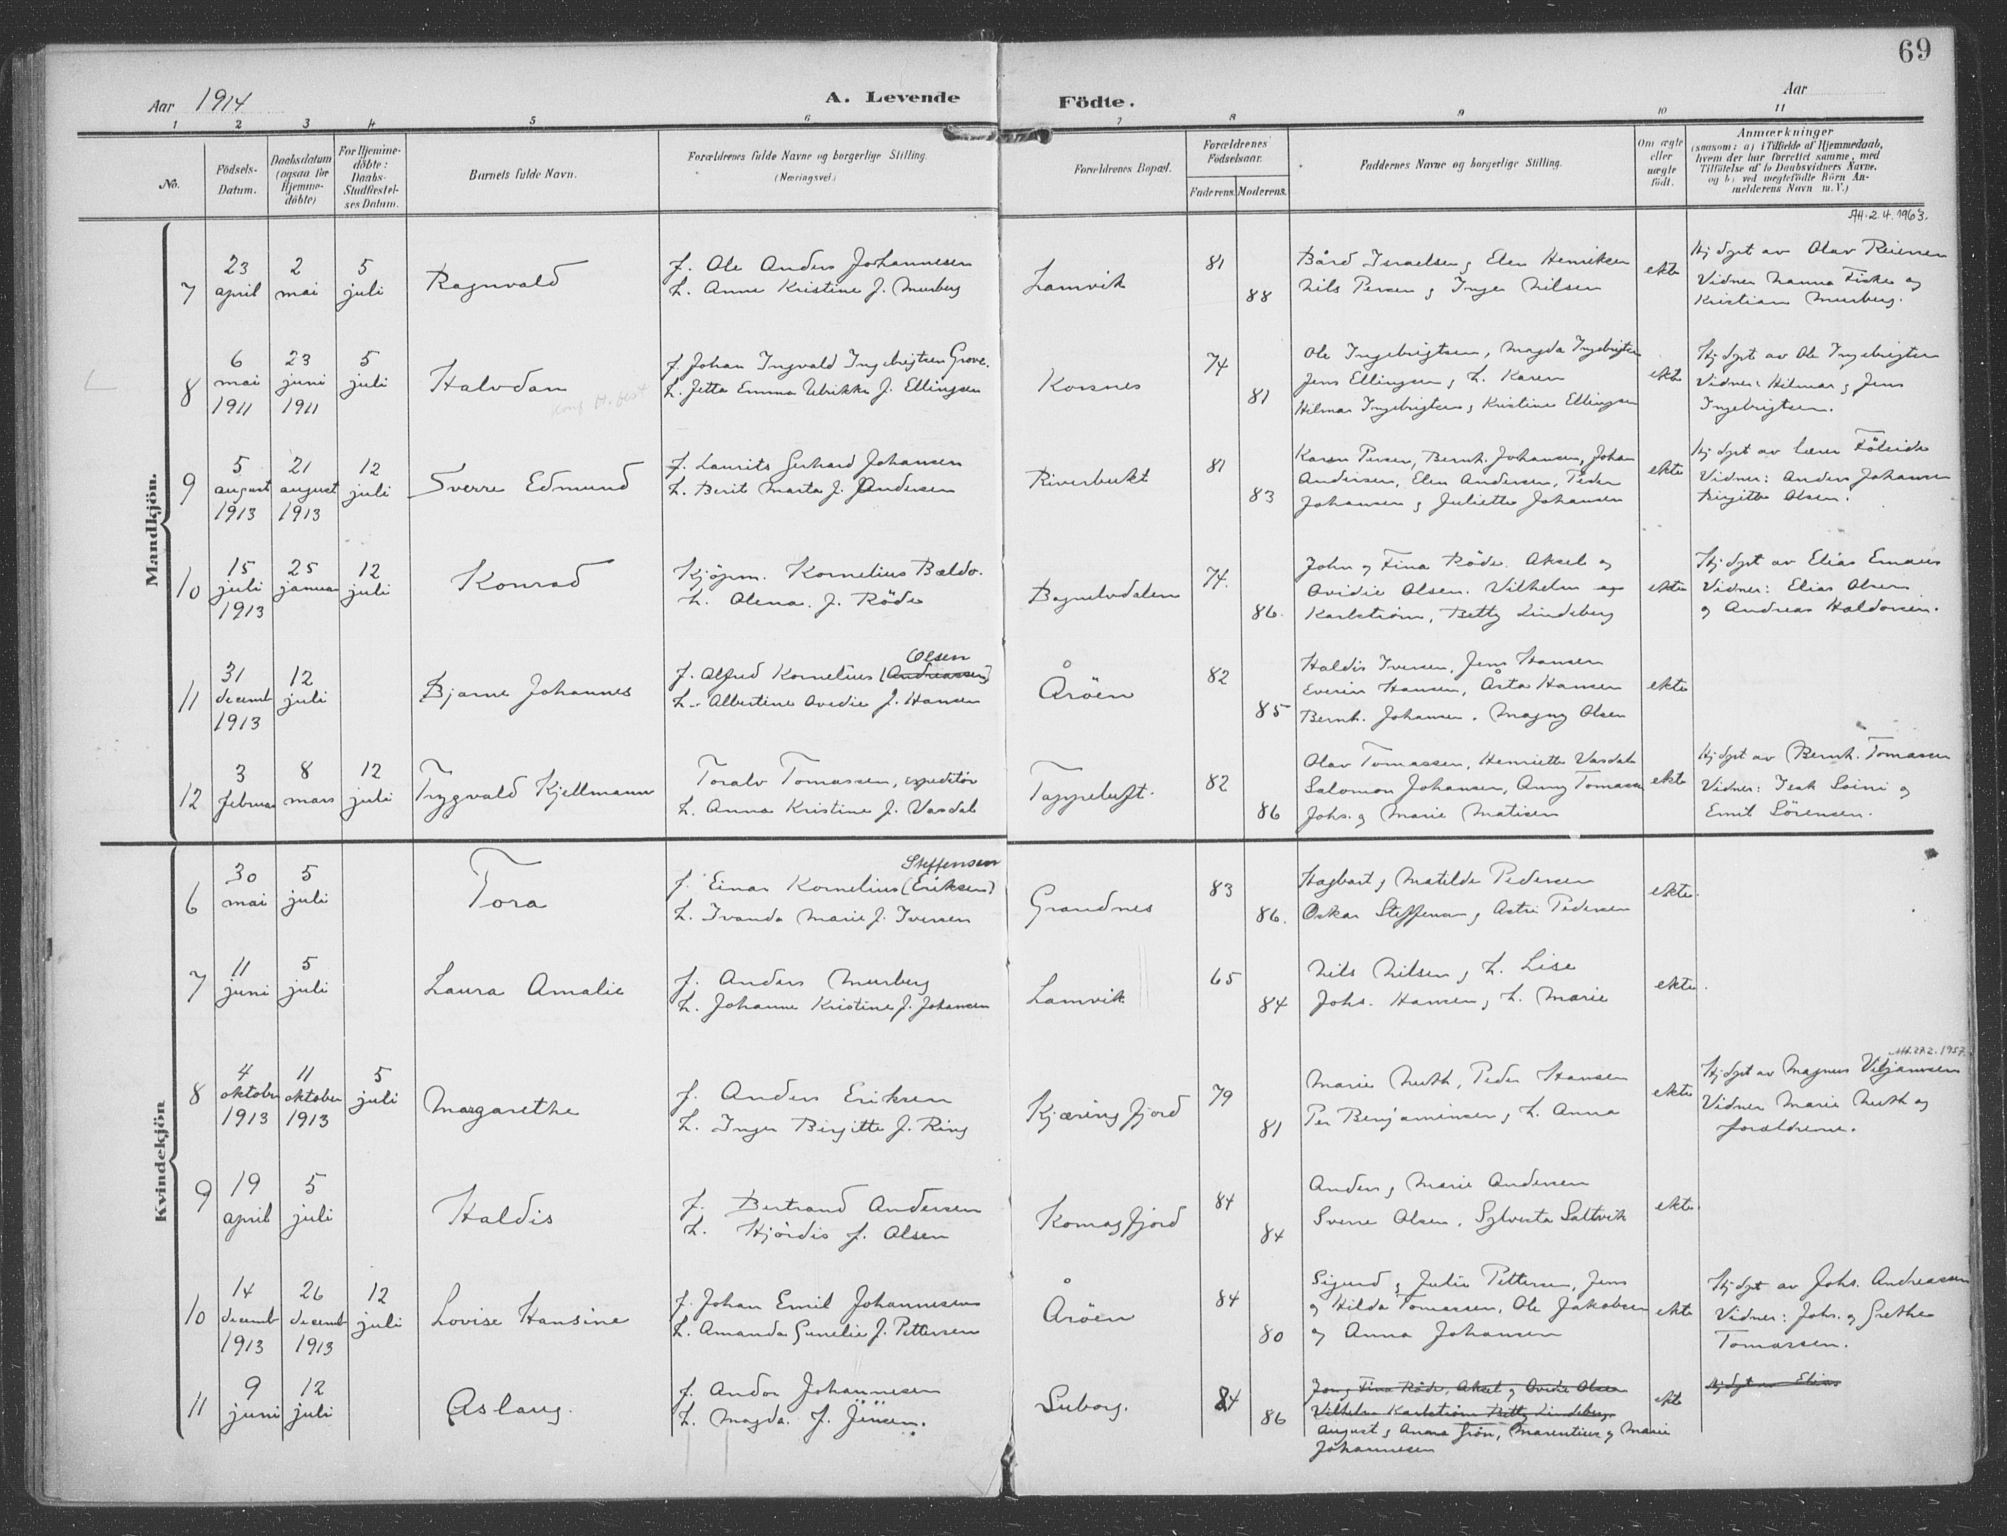 69
Aar 1914
A. Levende
Födte.
Aar
1 2 3 4 5 6 7 8 9 10 11
No.
Födsels-
Datum.
Daabsdatum
(ogsaa for
Hjemme-
döbte)
For Hjemme-
döbte:
Daabs-
Stadfæstel-
ses Datum.
Barnets fulde Navn.
Forældrenes fulde Navne og borgerlige Stilling.
(Næringsvei.)
Forældrenes Bopæl.
Forældrenes
Födselsaar.
Faderens. Moderens.
Faddernes Navne og borgerlige Stilling.
Om ægte
eller
uægte
födt.
Anmærkninger
(saasom: a) i Tilfælde af Hjemmedaab,
hvem der har forrettet samme, med
Tilföielse af to Daabsvidners Navne,
og b) ved uægtefödte Börn An-
melderens Navn m. V.)
AH. 2.4.1963.
Mandkjön.
7
23
april
2
mai
5
juli
Ragnvald
f. Ole Anders Johannesen
h. Anne Kristine f. Murberg
Lamvik
81
88
Bård Israelsen, Elen Henriksen
Nils Persen og Inger Nilsen
ekte
Hj döpt av Olav Reiersen
Vidner Nanna Fiske og
Kristian Murberg.
8
6
mai
1911
23
juni
1911
5
juli
Halvdan
f. Johan Ingvald Ingebrigtsen Grove.
h. Jitta Emma Ulrikke f. Ellingsen
Korsnes
74
81
Ole Ingebrigtsen, Magda Ingebrigtsen
Jens Ellingsen og h. Karen
Hilmar Ingebrigtsen og Kristine Ellingsen
ekte
Hj döpt av Ole Ingebrigtsen
Vidner: Hilmar og Jens
Ingebrigtsen.
9
5
august
1913
21
august
1913
12
juli
Sverre Edmund
f. Laurits Gerhard Johansen
h. Berit Marta f. Andersen
Riverbukt
81
83
Karen Persen, Bernh. Johansen, Johan
Andersen, Elen Andersen, Peder
Johansen og Juliette Johansen
ekte
Hj döpt av lærer Fölside
Vidner: Anders Johansen
Birgitte Olsen.
10
15
juli
1913
25
januar
12
juli
Konrad
Kjöpm. Kornelius Bældo.
h. Olena f. Röde
Bognelvdalen
74.
86.
John og Fina Röde. Aksel og
Ovidie Olsen. Vilhelm og
Karlström, Betty Lindeberg
ekte
Hj döpt av Elias Emaus
Vidner: Elias Olsen
og Andreas Haldorsen.
11
31
decemb
1913
12
juli
Bjarne Johannes
Olsen
f. Alfred Kornelius (Andreassen)
h. Albertine Ovedie f. Hansen
Åröen
82
85
Haldis Iversen, Jens Hansen
Everin Hansen, Åsta Hansen
Bernh. Johansen. Magny Olsen
ekte
12
3
februar
8
mars
12
juli
Trygvald Kjellmann
Toralv Tomassen, expeditör
h. Anna Kristine f. Vasdal
Tappeluft.
82
86
Olav Tomassen, Henriette Vasdal
Salomon Johansen, Anny Tomassen
Johs. og Marie Matisen
ekte
Hj döpt av Bernh. Tomassen
Vidner: Isak Soini og
Emil Sörensen.
Kvindekjön
6
30
mai
5
juli
Tora
Steffensen
f. Einar Kornelius (Eriksen)
h. Ivanda Marie f. Iversen
Grandnes
83
86.
Hagbart og Matilde Pedersen
Oskar Steffensen og Astri Pedersen
ekte.
7
11
juni
5
juli
Laura Amalie
f. Anders Murberg
h. Johanne Kristine f. Johansen
Lamvik
65
84
Nils Nilsen og h. Lise
Johs. Hansen og h. Marie
ekte.
AH. 27.2.1957.
8
4
oktober
1913
11
oktober
1913
5
juli
Margarethe
f. Anders Eriksen
h. Inger Birgitte f. Ring
Kjæringfjord
79
81
Marie Muth, Peder Hansen
Per Benjaminsen og h. Anna
ekte
Hj döpt av Magnus Viljamsen
Vidner Marie Muth og
forældrene.
9
19
april
5
juli
Haldis
f. Bertrand Andersen
h. Hjördis f. Olsen
Komagfjord
84
84
Anders og Marie Andersen
Sverre Olsen, Sylvesta Saltvik
ekte.
10
14
decemb
1913
26
decemb
1913
12
juli
Lovise Hansine
f. Johan Emil Johannesen
h. Amanda Gunelie f. Pettersen
Åröen
84
80
Sigurd og Julie Pettersen, Jens
og Hilda Tomassen, Ole Jakobsen
og Anna Johansen
ekte
Hj döpt av Johs. Andreassen
Vidner: Johs. og Grethe
Tomassen.
11
9
juni
12
juli
Aslaug.
f. Andor Johannesen
h. Magda f. Jensen.
Suborg.
84
86
John og Fina Röde, Aksel og Ovidie Olsen
Vilhelm Karlström Betty Lindeberg
August og Anna Grön, Marentius og Marie
Johannesen
ekte
Hj döpt av Elias